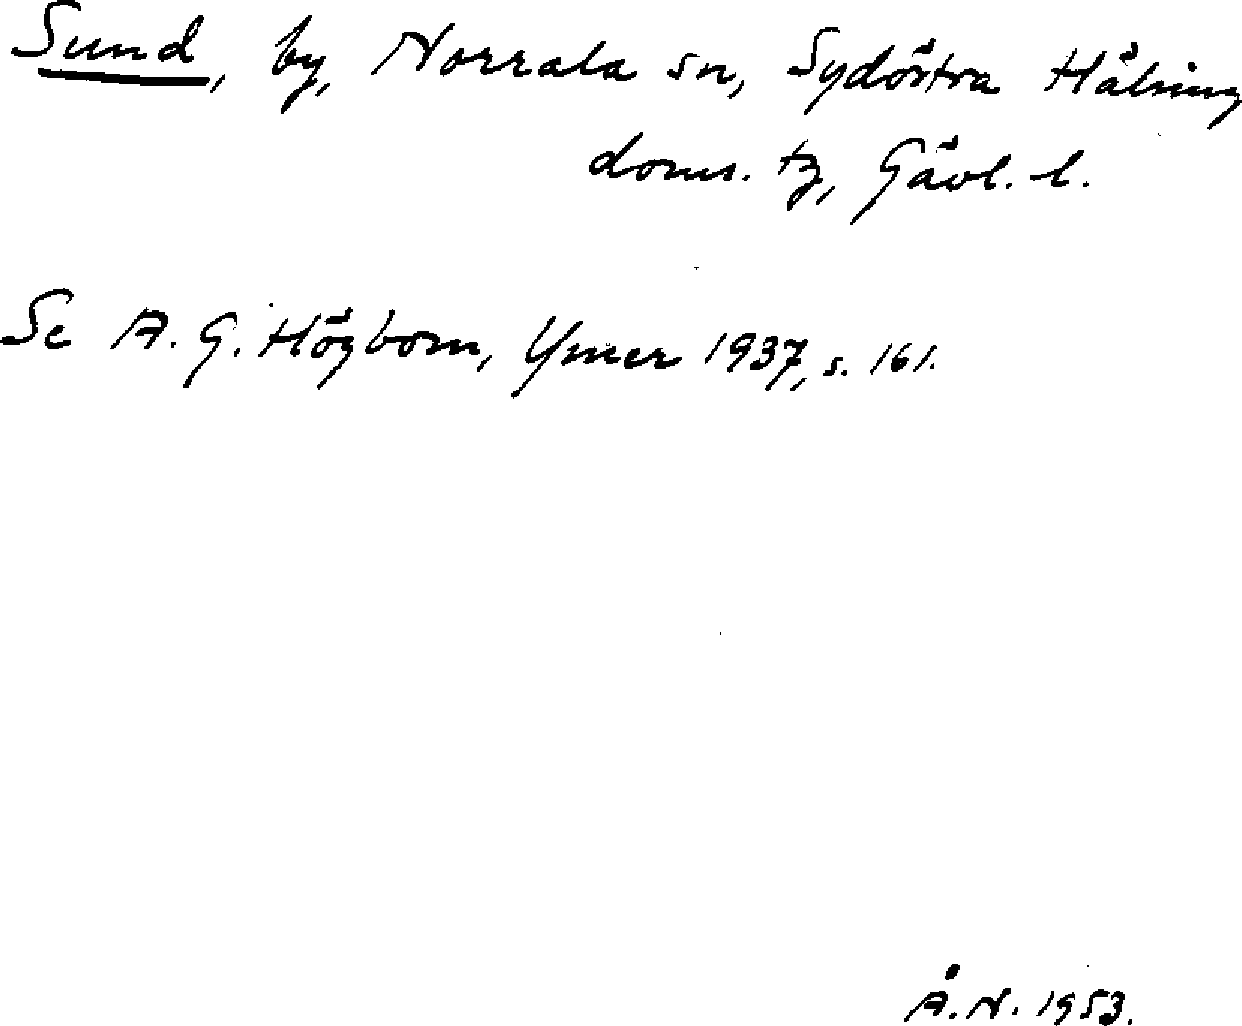 Sund, by, Norrala sn, Sydöstra Hälsing
doms. tg, Gävl. l.
Se A. G. Högbom, Ymer 1937, s. 161.
Å. N. 1953.